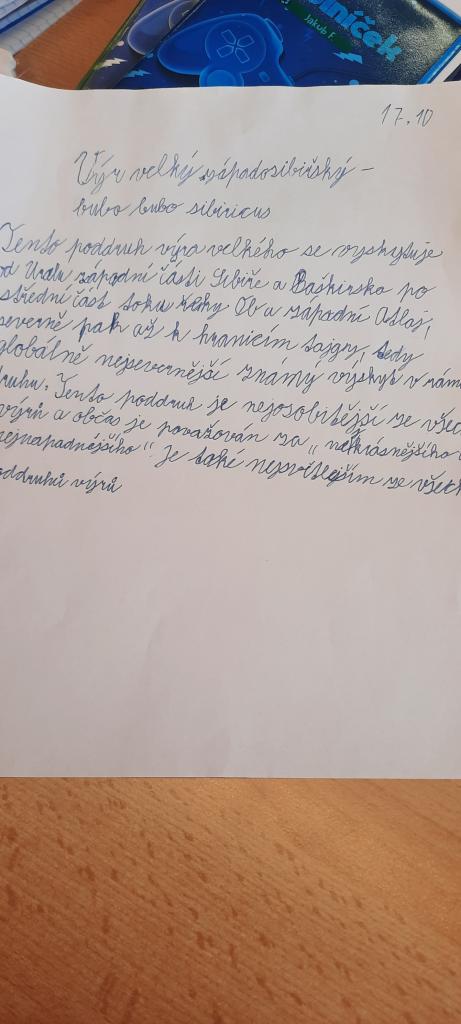 níček
Jakub F.
17.10
Výr velký západosibiřský –
bubo bubo sibiricus
Tento poddruh výra velkého se vyskytuje
od Uralu západní části Sibiře a Baškirska po
střední část toku řeky Ob a západní Altaj,
severně pak až k hranicím tajgy, tedy
globálně nejsevernější známý výskyt v rám
druhu. Tento poddruh je nejosobitější ze všec
výrů a občas je považován za „nejkrásnějšího
nejnápadnějšího" Je také nejsvětlejším ze všech
oddruhů výrů